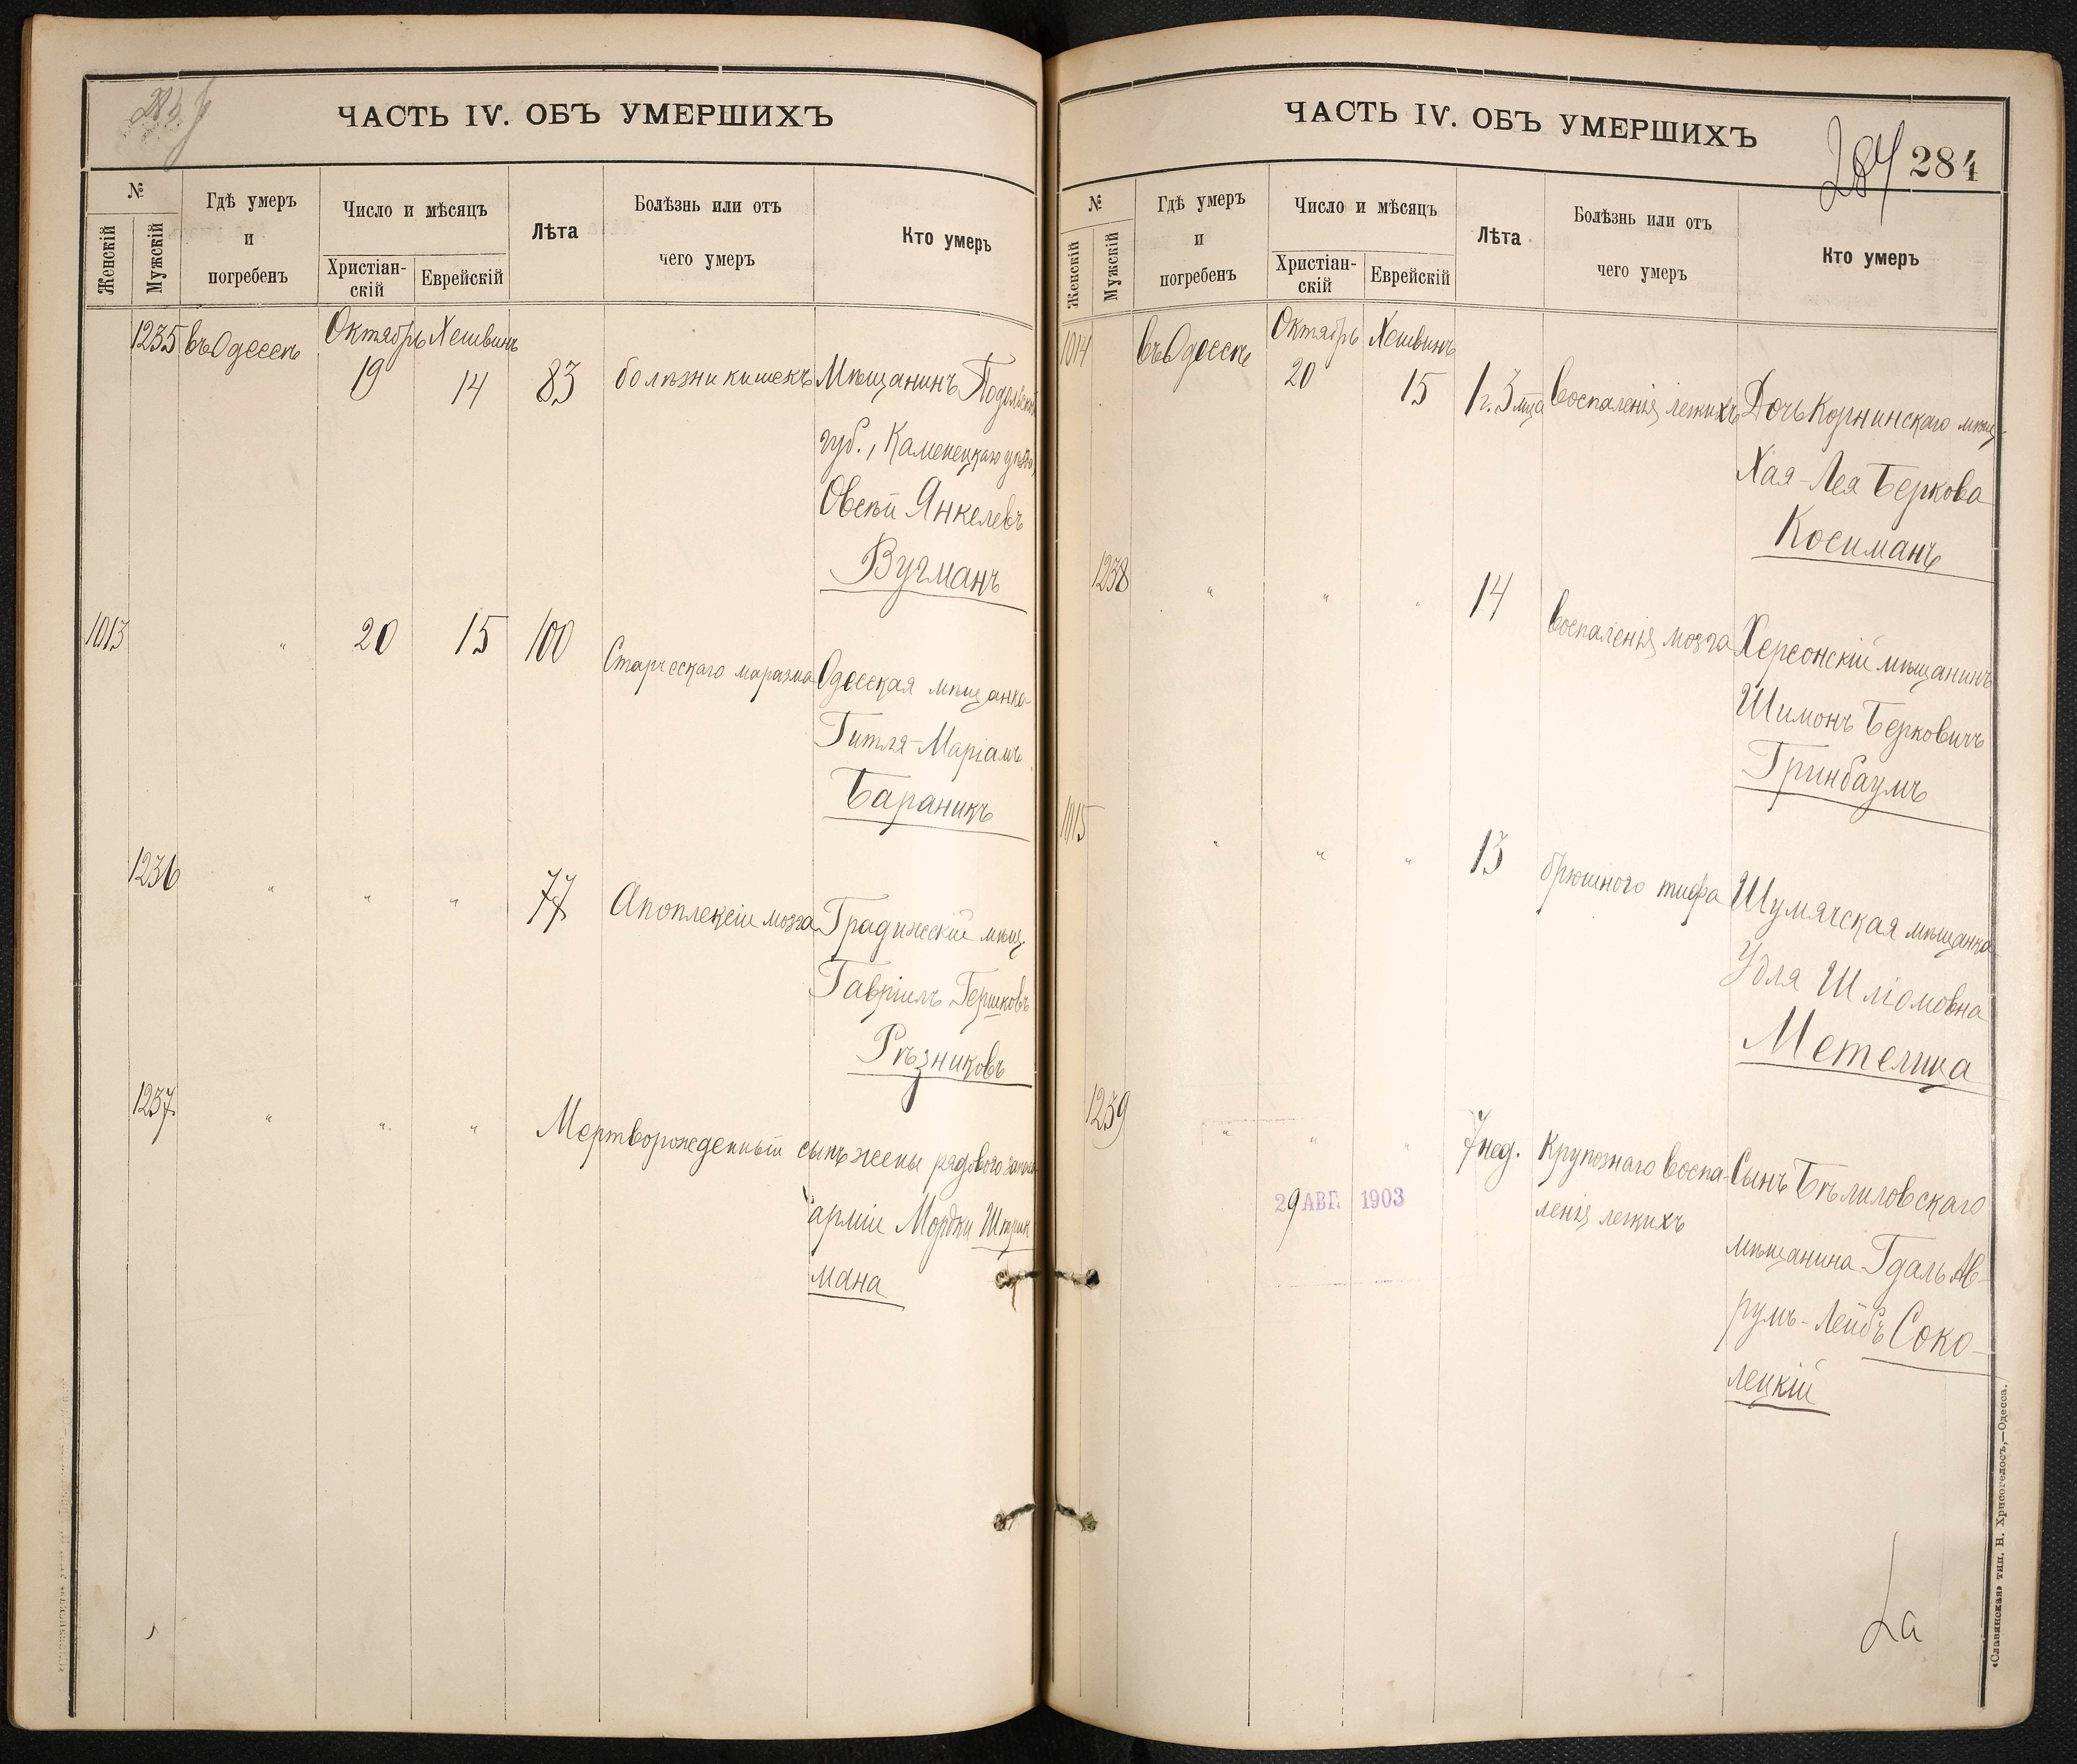 ЧАСТЬ IV. ОБЪ УМЕРШИХЪ
№
Женскій
Мужскій
Гдѣ умеръ
и
погребенъ
Число и мѣсяцъ
Христіан-
скій
Еврейскій
Лѣта
Болѣзнь или отъ
чего умеръ
Кто умеръ
1235 въ Одессѣ Октябрь Хешвинъ
19 14 83 болѣзни кишекъ Мѣщанинъ Подольской
губ., Каменецкаго уѣзда,
Овсѣй Янкелевъ
Вугманъ
1013 " 20 15 100 Старческаго маразма Одесская мѣщанка
Гитля-Маріамъ
Бараникъ
1236 " " " 77 Апоплексіи мозга Градижскій мѣщ.
Гавріилъ Гершковъ
Рѣзниковъ
1237 " " " Мертворожденный сынъ жены рядового запаса
арміи Мордки Штрик
мана
ЧАСТЬ IV. ОБЪ УМЕРШИХЪ
284 284
№
Женскій
Мужскій
Гдѣ умеръ
и
погребенъ
Число и мѣсяцъ
Христіан-
скій
Еврейскій
Лѣта
Болѣзнь или отъ
чего умеръ
Кто умеръ
1014 въ Одессѣ Октябрь Хешвинъ
20 15 1 г. 3 мца воспаленія легкихъ Дочь Корнинскаго мѣщ.
Хая-Лея Беркова
Косиманъ
1238 " " " 14 воспаленія мозга Херсонскій мѣщанинъ
Шимонъ Берковичъ
Гринбаумъ
1015 " " " 13 брюшного тифа Шумячская мѣщанка
Удля Шліомовна
Метелица
1239 " " " 7 нед. Крупознаго воспа-
ленія легкихъ
Сынъ Бѣлиловскаго
мѣщанина Гдаль Ав-
румъ-Лейбъ Соко-
лецкій
29 АВГ. 1903
«Славянская» тип. Н. Хрисогелосъ,—Одесса.